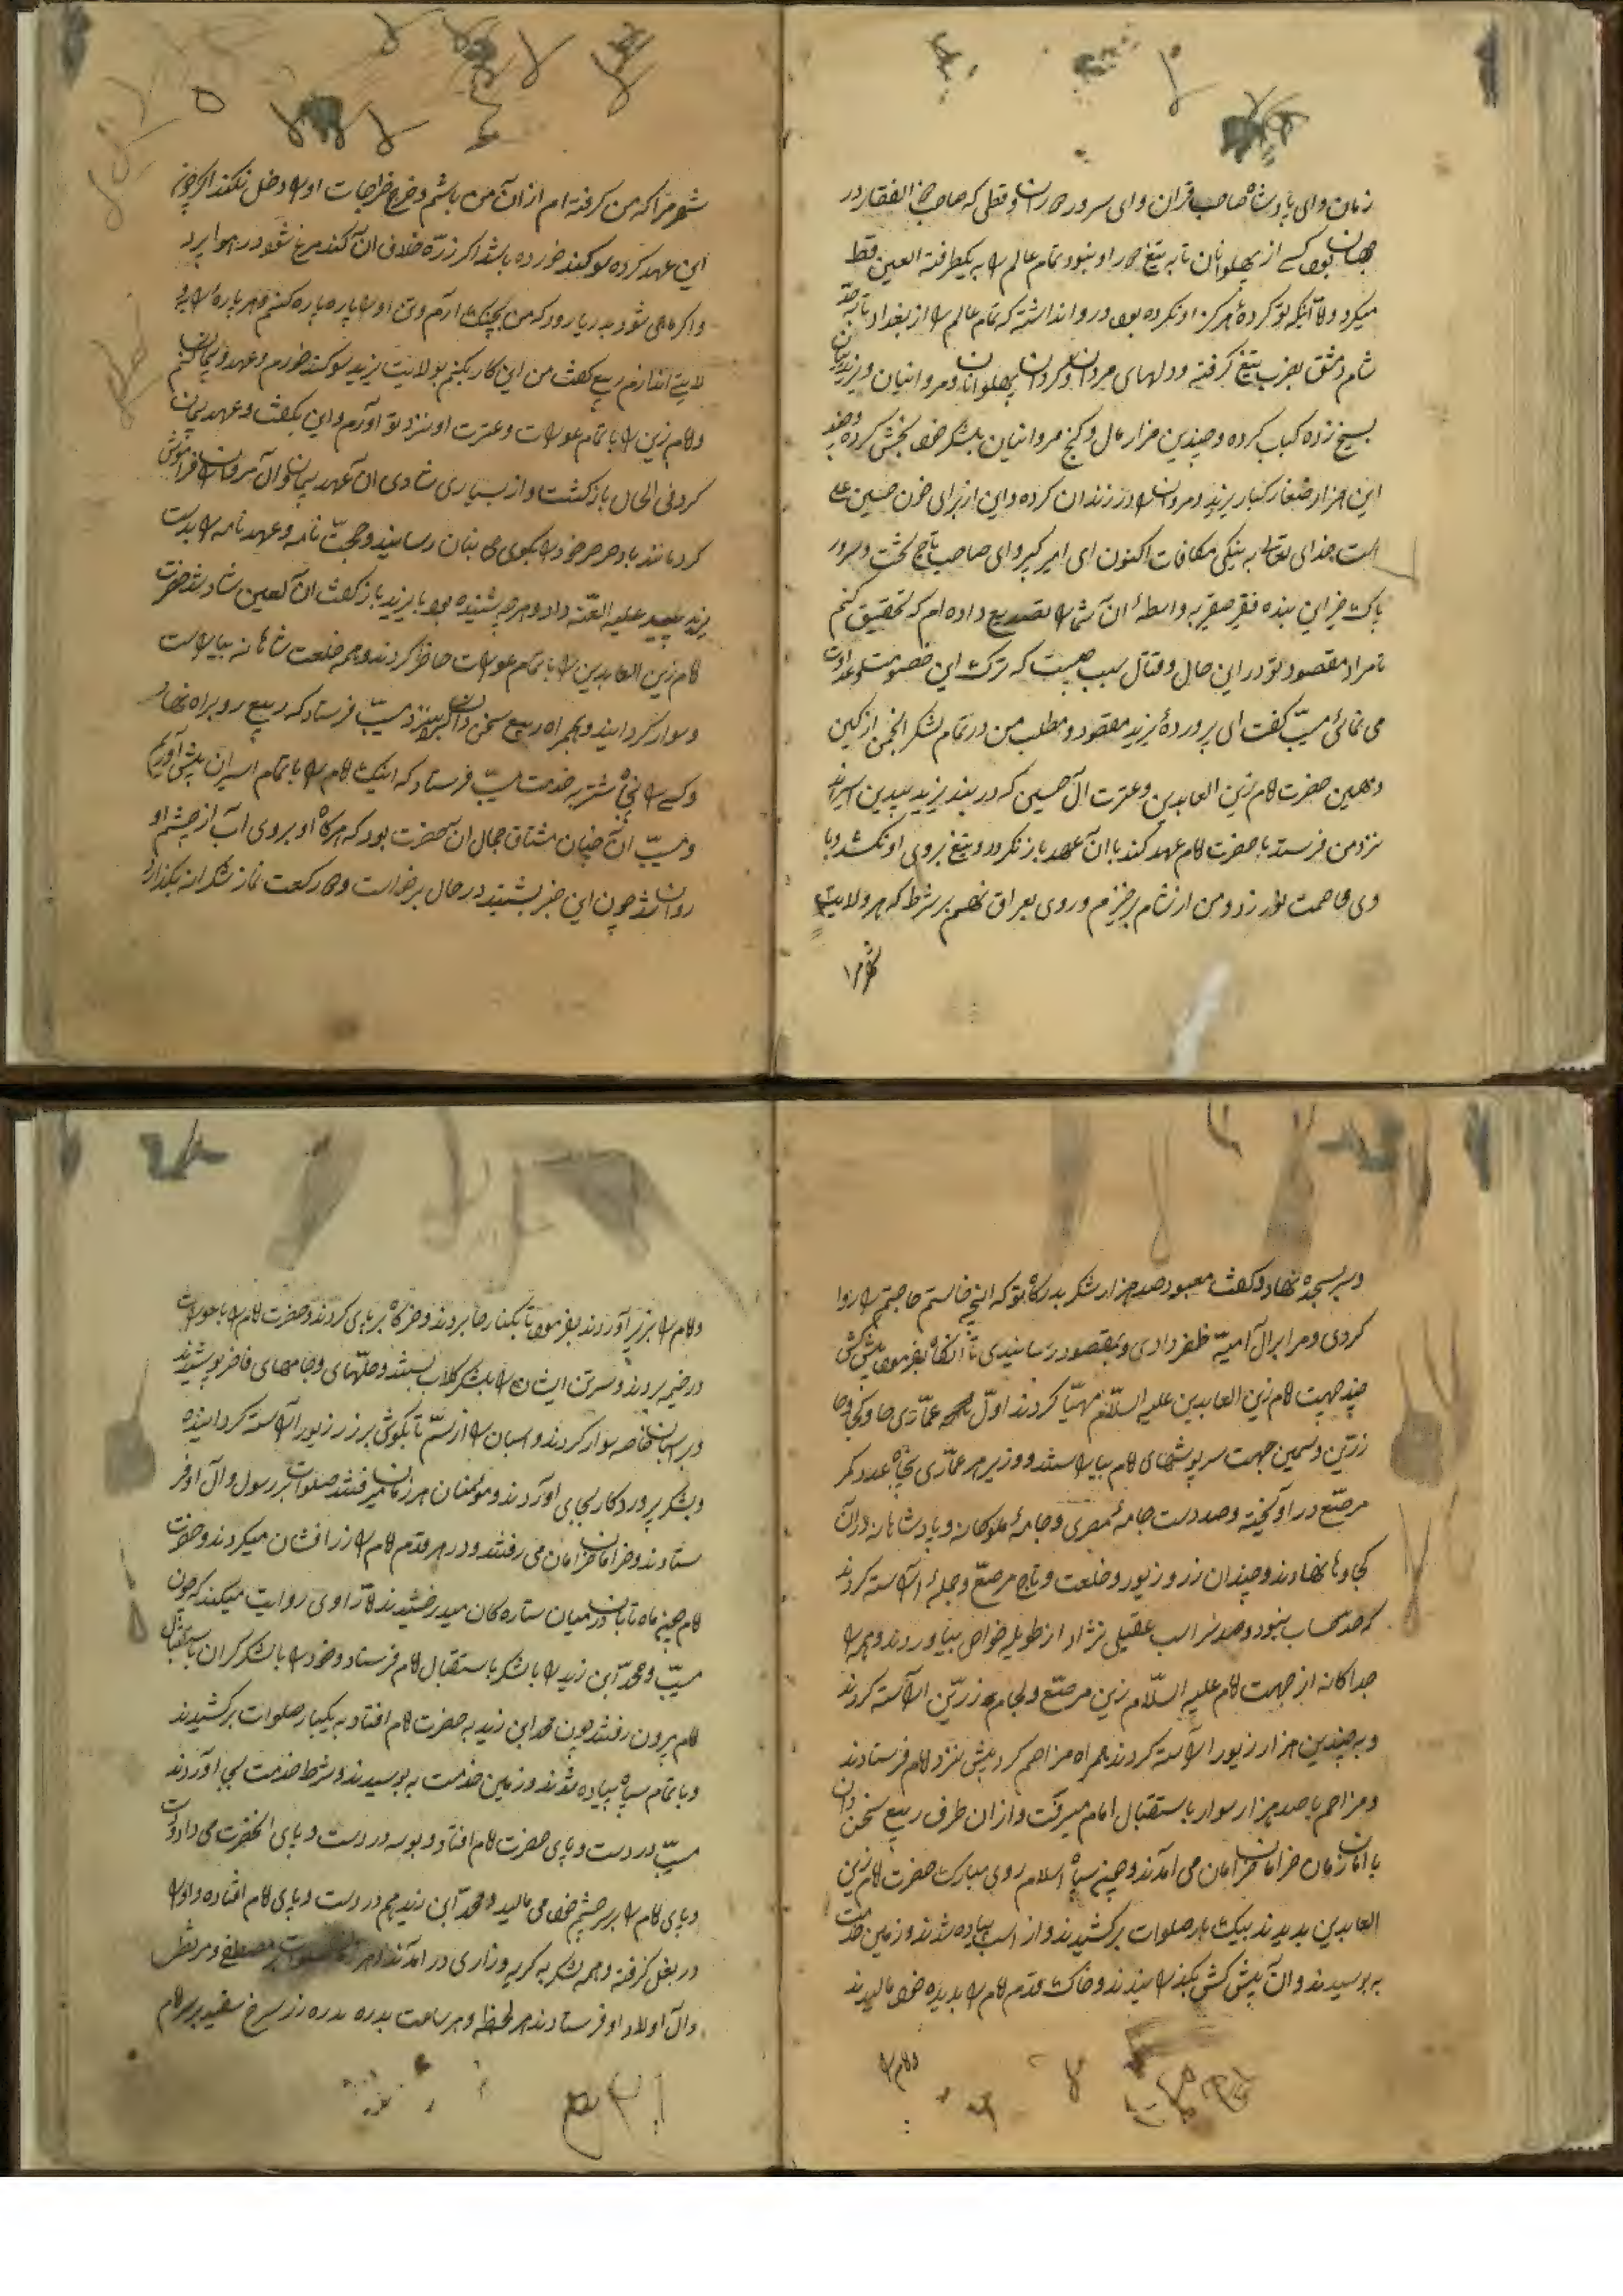 زمان و ای پادشاه صاحب قران و ای سرور که صاحب ذالفقار در
جهان بود کسی از پهلوانان تاب تیغ او نبود و تمام عالم را به یکطرفة العین قط
میکرد و لا اینکه تو کرده هرگز او نکرده بود و روا نداشته که تمام عالم را از بغداد تا به حد
شام و دمشق بضرب تیغ گرفته و دلهای مردان و کردان و پهلوانان و مروانیان و یزیدیان
بسیخ زده کباب کرده و چندین هزار مال و گنج مروانیان بلشکر خود بخش کرده و چند
این هزار صغار کبار یزید و مروان را در زندان کرده و این از برای خون حسین علی
است خدای تعالی به نیکی مکافات اکنون ای امیر کبیر و ای صاحب تاج تخت و سرور
پاک خیز این بنده فقیر حقیر بواسطه آن شما را تصدیع داده ام که تحقیق کنم
تا مراد مقصود تو در این حال و قتال سبب چیست که ترک این خصومت و عداوت
می نمائی مسیب گفت ای پرورده یزید مقصود و مطلب من در تمام لشکر انجمن از کین
و همین حضرت امام زین العابدین و عترت آل حسین که در بند یزید پلیدین اسیراند
نزد من فرستد با حضرت امام عهد کند با آن عهد باز نگردد و تیغ بروی او نکشد و با
وی مخاصمت نورزد و من از شام برخیزم و روی بعراق نهم بر شرط که هر ولایت
شهر مرا
شهر مرا که من گرفته ام از آن من باشم و خرج خراجات او را دخل نکند اگر چون
این عهد کرده سوکند خورده باشد اگر ذره خلاف آن کند مرغ شود در هوا برد
و اگر ماهی شود به دریا رود که من بچنگ آرم و تن او را پاره پاره کنم و هر پاره را به
ولایتی اندازم ربیع گفت من این کار بکنم بولایت یزید سوکند خورم و عهد و پیمان کنم
و امام زین را با تمام عورات و عترت او نزد تو آورم و این بگفت و عهد پیمان
کرد فی الحال بازگشت و از بسیاری شادی آن عهد پیمان و آل مروان را فراموش
کرد مانند باد صرصر خود را بکوی بنان رسانید و حجت نامه و عهد نامه را بدست
یزید پلید علیه العنة داد و هر چه بشنیده بود با یزید باز گفت آن لعین شاد شد حضرت
امام زین العابدین را با تمام عورات حاضر کردند و همه خلعت شاهانه بیاراست
و سوار گردانیند و بهمراه ربیع سخن دان نزد مسیب فرستاد که ربیع رو براه نهاد
و کسی را به خدمت مسیب فرستاد که اینک امام را با تمام اسیران پیش آوریم
و مسیب آن چنان مشتاق جمال آن حضرت بود که هرگاه او بروی آب از چشم او
روان شد چون این خبر بشنید در حال برخواست و دو رکعت نماز شکرانه بگذارد
و سر بسجده نهاد و گفت معبود صد هزار شکر بدرگاه تو که آنچه خاستم حاجتم را روا
کردی و مرا بر آل امیه ظفر دادی و بمقصود رسانیدی آنگاه بفرمود پیش کش
چند جهت امام زین العابدین علیه السلام مهیا کردند اول عماری ها و کجاوها
زرین و سیمین جهت سرپوشهای امام بیاراستند و زیر هر عماری پنجاه عدد کمر
مرصع در آویخته و صد دست جامهٔ مصری و جامهٔ ملوکانه و پادشاهانه در آن
کجاوها نهادند و چندان زر و زیور و خلعت و تاج مرصع و جمله آراسته کردند
که حد حساب نبود و صد سر اسب عقیلی نژاد از طویله خواص بیاوردند و همه را
جداگانه از جهت امام علیه السلام زین مرصع و لجام زرین آراسته کردند
و به چندین هزار زیور آراسته کردند همراه مزاحم کرد پیش نزد امام فرستادند
و مزاحم با صد هزار سوار باستقبال امام میرفت و از آن طرف ربیع سخن دان
با امام زمان خرامان خرامان می آمدند و چون سپاه اسلام روی مبارک حضرت امام زین
العابدین بدیدند بیک بار صلوات برکشیدند و از اسب پیاده شدند و زمین خدمت
به بوسیدند و آن پیش کش بگذرانیدند و خاک قدم امام را بدیده خود مالیدند
و امام را
و امام را بزیر آوردند بفرمود تا بکنار بردند و خرگاه برپای کردند و حضرت امام را با عورات
در خیمه بردند و سر تن ایشان را بشکر گلاب بشستند و حلهای و جامهای فاخر پوشیدند
و بر اسبان خاصه سوار کردند و اسبان را از سم تا بگوش بزر زیور آراسته گردانیده
و شکر پروردگار بجای آوردند و مؤمنان هر زمان میرفتند صلوات بر رسول و آل او فر
ستادند و خرامان خرامان می رفتند و در هر قدم امام را زر افشان میکردند و حضرت
امام چون ماه تابان در میان ستاره گان میدرخشیدند اما راوی روایت میکند که چون
مسیب و محمد ابن زید را با لشکر باستقبال امام فرستاد و خود را با لشکر گران باستقبال
امام برون رفتند چون محمد ابن زید به حضرت امام افتاد به یکبار صلوات برکشیدند
و با تمام سپاه پیاده شدند و زمین خدمت به بوسیدند و شرط خدمت بجای آوردند
مسیب در دست و پای حضرت امام افتاد و بوسه در دست و پای آنحضرت می داد و دست
و پای امام را بر سر چشم خود می مالید و محمد ابن زید هم در دست و پای امام افتاده و او را
در بغل گرفته و همه لشکر به گریه و زاری در آمدند و هر صلوات بر مصطفی و مرتضی
و آل اولاد او فرستادند هر لحظه و هر ساعت بدره بدره زر سرخ سفید بر سر امام